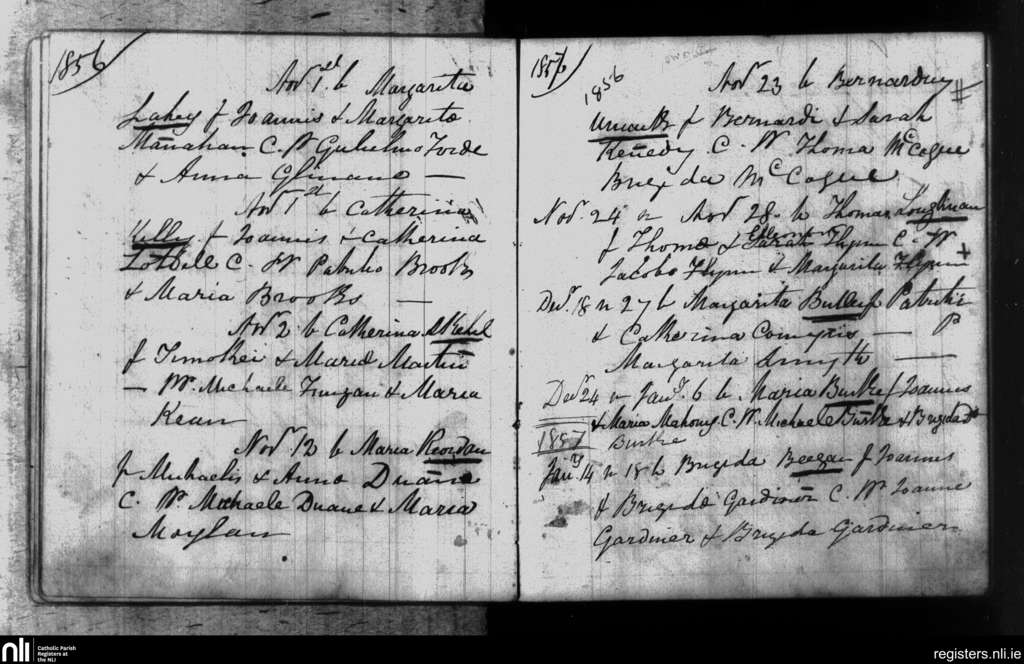 1856
Nov 1st b Margarita
Lahey f Joannis & Margarita
Manahan C. W Gulielmo Forde
& Anna
Nov 1st b Catherina
Killy f Joannis & Catherina
C. W Patritio Brooks
& Maria Brooks —
Nov 2 b Catherina
f Timothei & Maria Martin
— W. Michaele & Maria
Kean
Nov 12 b Maria Reordan
f Michaelis & Anna Duane
C. W. Michaele Duane & Maria
Moylan
1857
1856
Nov 23 b Bernardus
f Bernardi & Sarah
Kenedy C. W Thoma McCogue
Brigida McCogue
Nov. 24 n Nov 28 b Thomas Loughnan
f Thomae & Sarah Flynn C. W
Jacobo Flynn & Margarita Flynn
Decr. 18 n 27 b Margarita Butler f Patritii
& Catherina — P
Margarita Smyth —
Decr 24 n Jany. 6 b Maria Burke f Joannis
& Maria Mahony C. W. Michaele Burke & Brigida
1857 Burke
Jany 14 n 18 b Brigida Beegan f Joannis
& Brigida Gardiner C. W Joanne
Gardiner & Brigida Gardiner
nli
Catholic Parish
Registers at
the NLI
registers.nli.ie